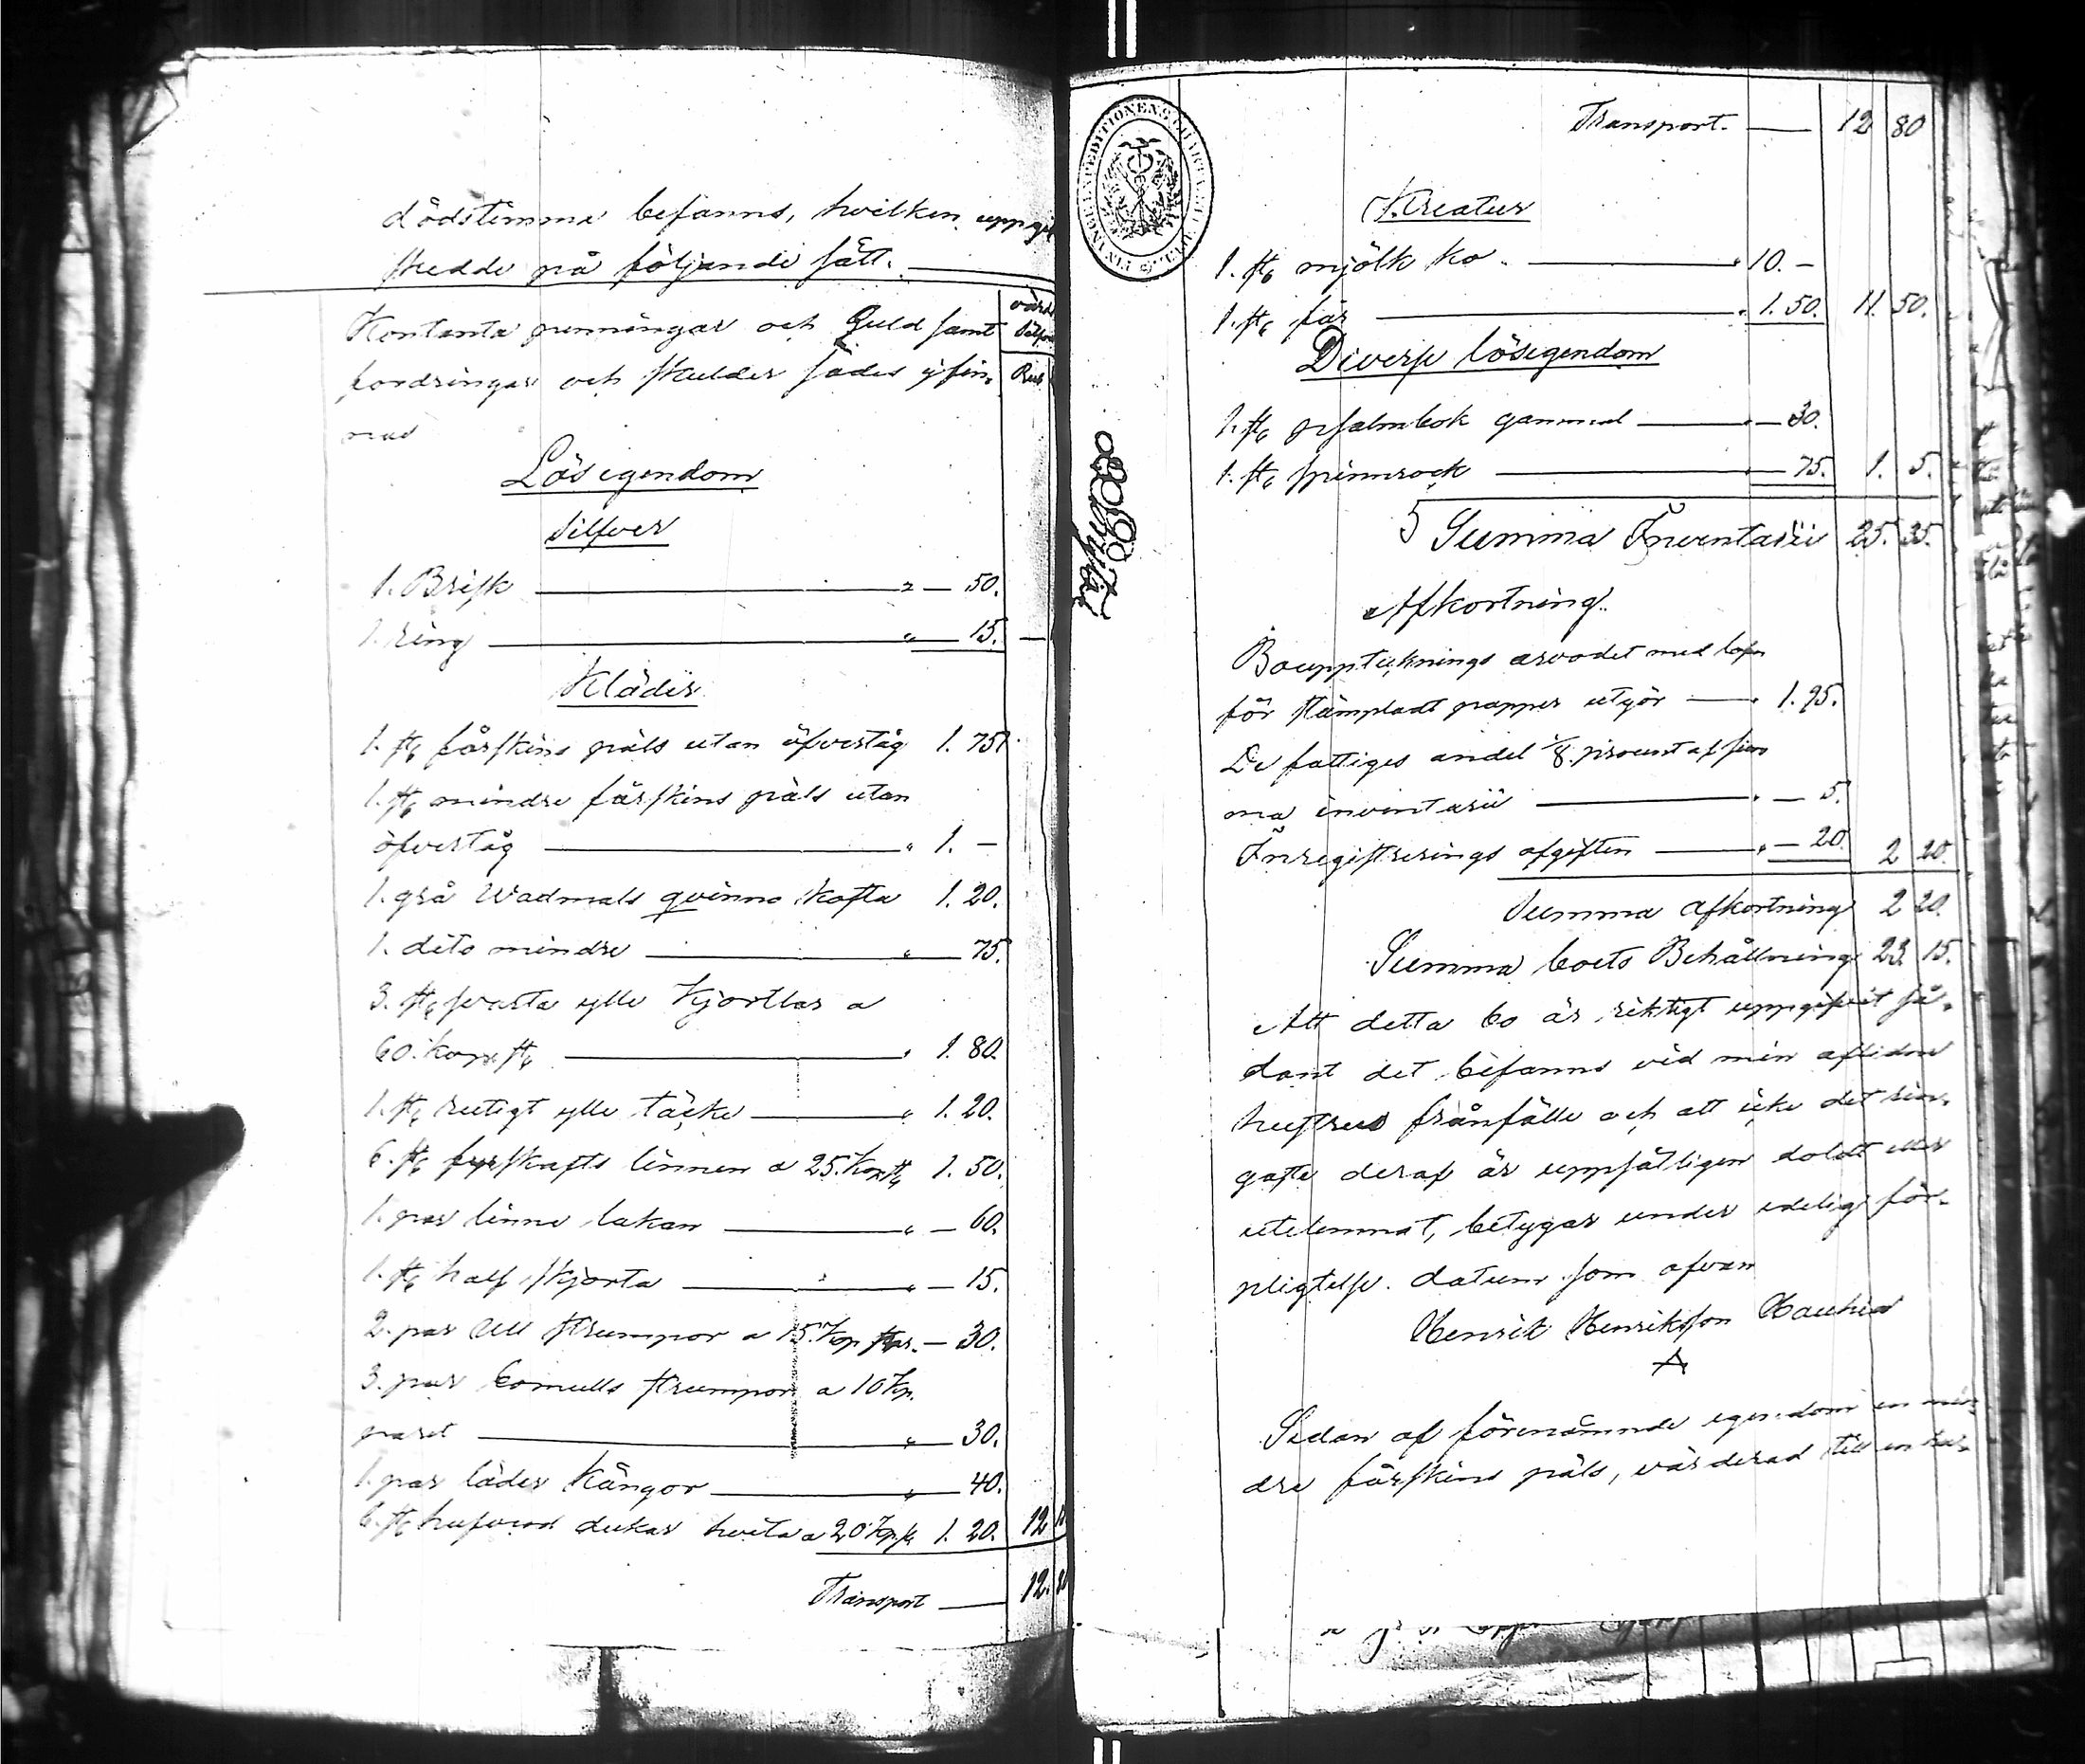 dödstimma befanns, hvilken uppgift
skedde på följande sätt.
värde
Silfver
Kontanta penningar och Guld samt
fordringar och skulder sades ej fin-
Rub
nas
Lösegendom
Silfver
1. Brisk " — 50.
1. ring " — 15. —
Kläder
1. st fårskins päls utan öfvertåg 1. 75.
1. st mindre fårskins päls utan
öfvertåg " 1. —
1. grå Wadmals qvinno kofta 1. 20.
1. dito mindre " — 75.
3. st svarta ylle kjortlar a
60. kop st " 1. 80.
1. st rutigt ylle täcke " 1. 20.
6. st fyrskafts linnen a 25. kop st 1. 50.
1. par linne lakan " — 60.
1. st half skjorta " — 15.
2. par Ull strumpor a 15. kop par. — 30.
3. par bomulls strumpor a 10 kp.
paret " — 30.
1. par läder kängor " — 40.
6. st hufvud dukar hvita a 20 kop st 1. 20. 12
Transport — 12.
Transport. — 12 80
Kreatur
1. st mjölk ko. " 10. —
1. st får " 1. 50. 11. 50.
Diverse lösegendom
1. st psalmbok gammal " — 30.
1. st spinnrock " — 75. 1. 5.
Summa Inventarii 25. 35.
Afkortning.
Bouppteknings arvodet med lösen
för stämpladt papper utgör — " 1. 95.
De fattiges andel 1/8 procent af sum
ma inventarii " — 5.
Inregistrerings afgiften " — 20. 2 20.
Summa afkortning 2 20.
Summa boets Behållning 23. 15.
Att detta bo är riktigt uppgifvit så-
dant det befanns vid min aflidne
hustrus frånfälle och att icke det rin-
gaste deraf är uppsåtligen doldt eller
utelemnat, betygar under edelig för-
pligtelse. datum som ofvan
Henrik Henriksson
Sedan af förenämnde egendom en min-
dre fårskins päls, värderad till en